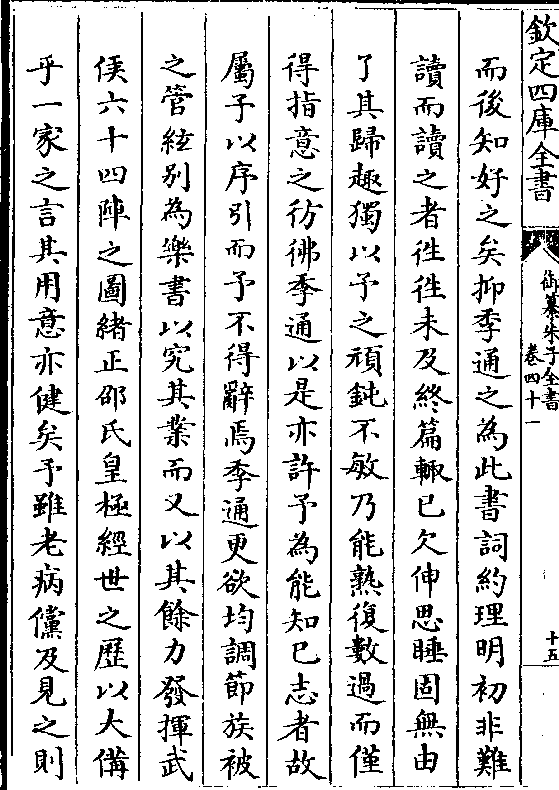 欽定四庫全書
御纂朱子全書
卷四十一
十五
而後知好之矣抑季通之為此書詞約理明初非難
讀而讀之者徃徃未及終篇輙已欠伸思睡固無由
了其歸趣獨以予之頑鈍不敏乃能熟復數過而僅
得指意之彷彿季通以是亦許予為能知已志者故
屬予以序引而予不得辭焉季通更欲均調節族被
之管絃别為樂書以究其業而又以其餘力發揮武
侯六十四陣之圖緒正邵氏皇極經世之歷以大備
乎一家之言其用意亦健矣予雖老病儻及見之則